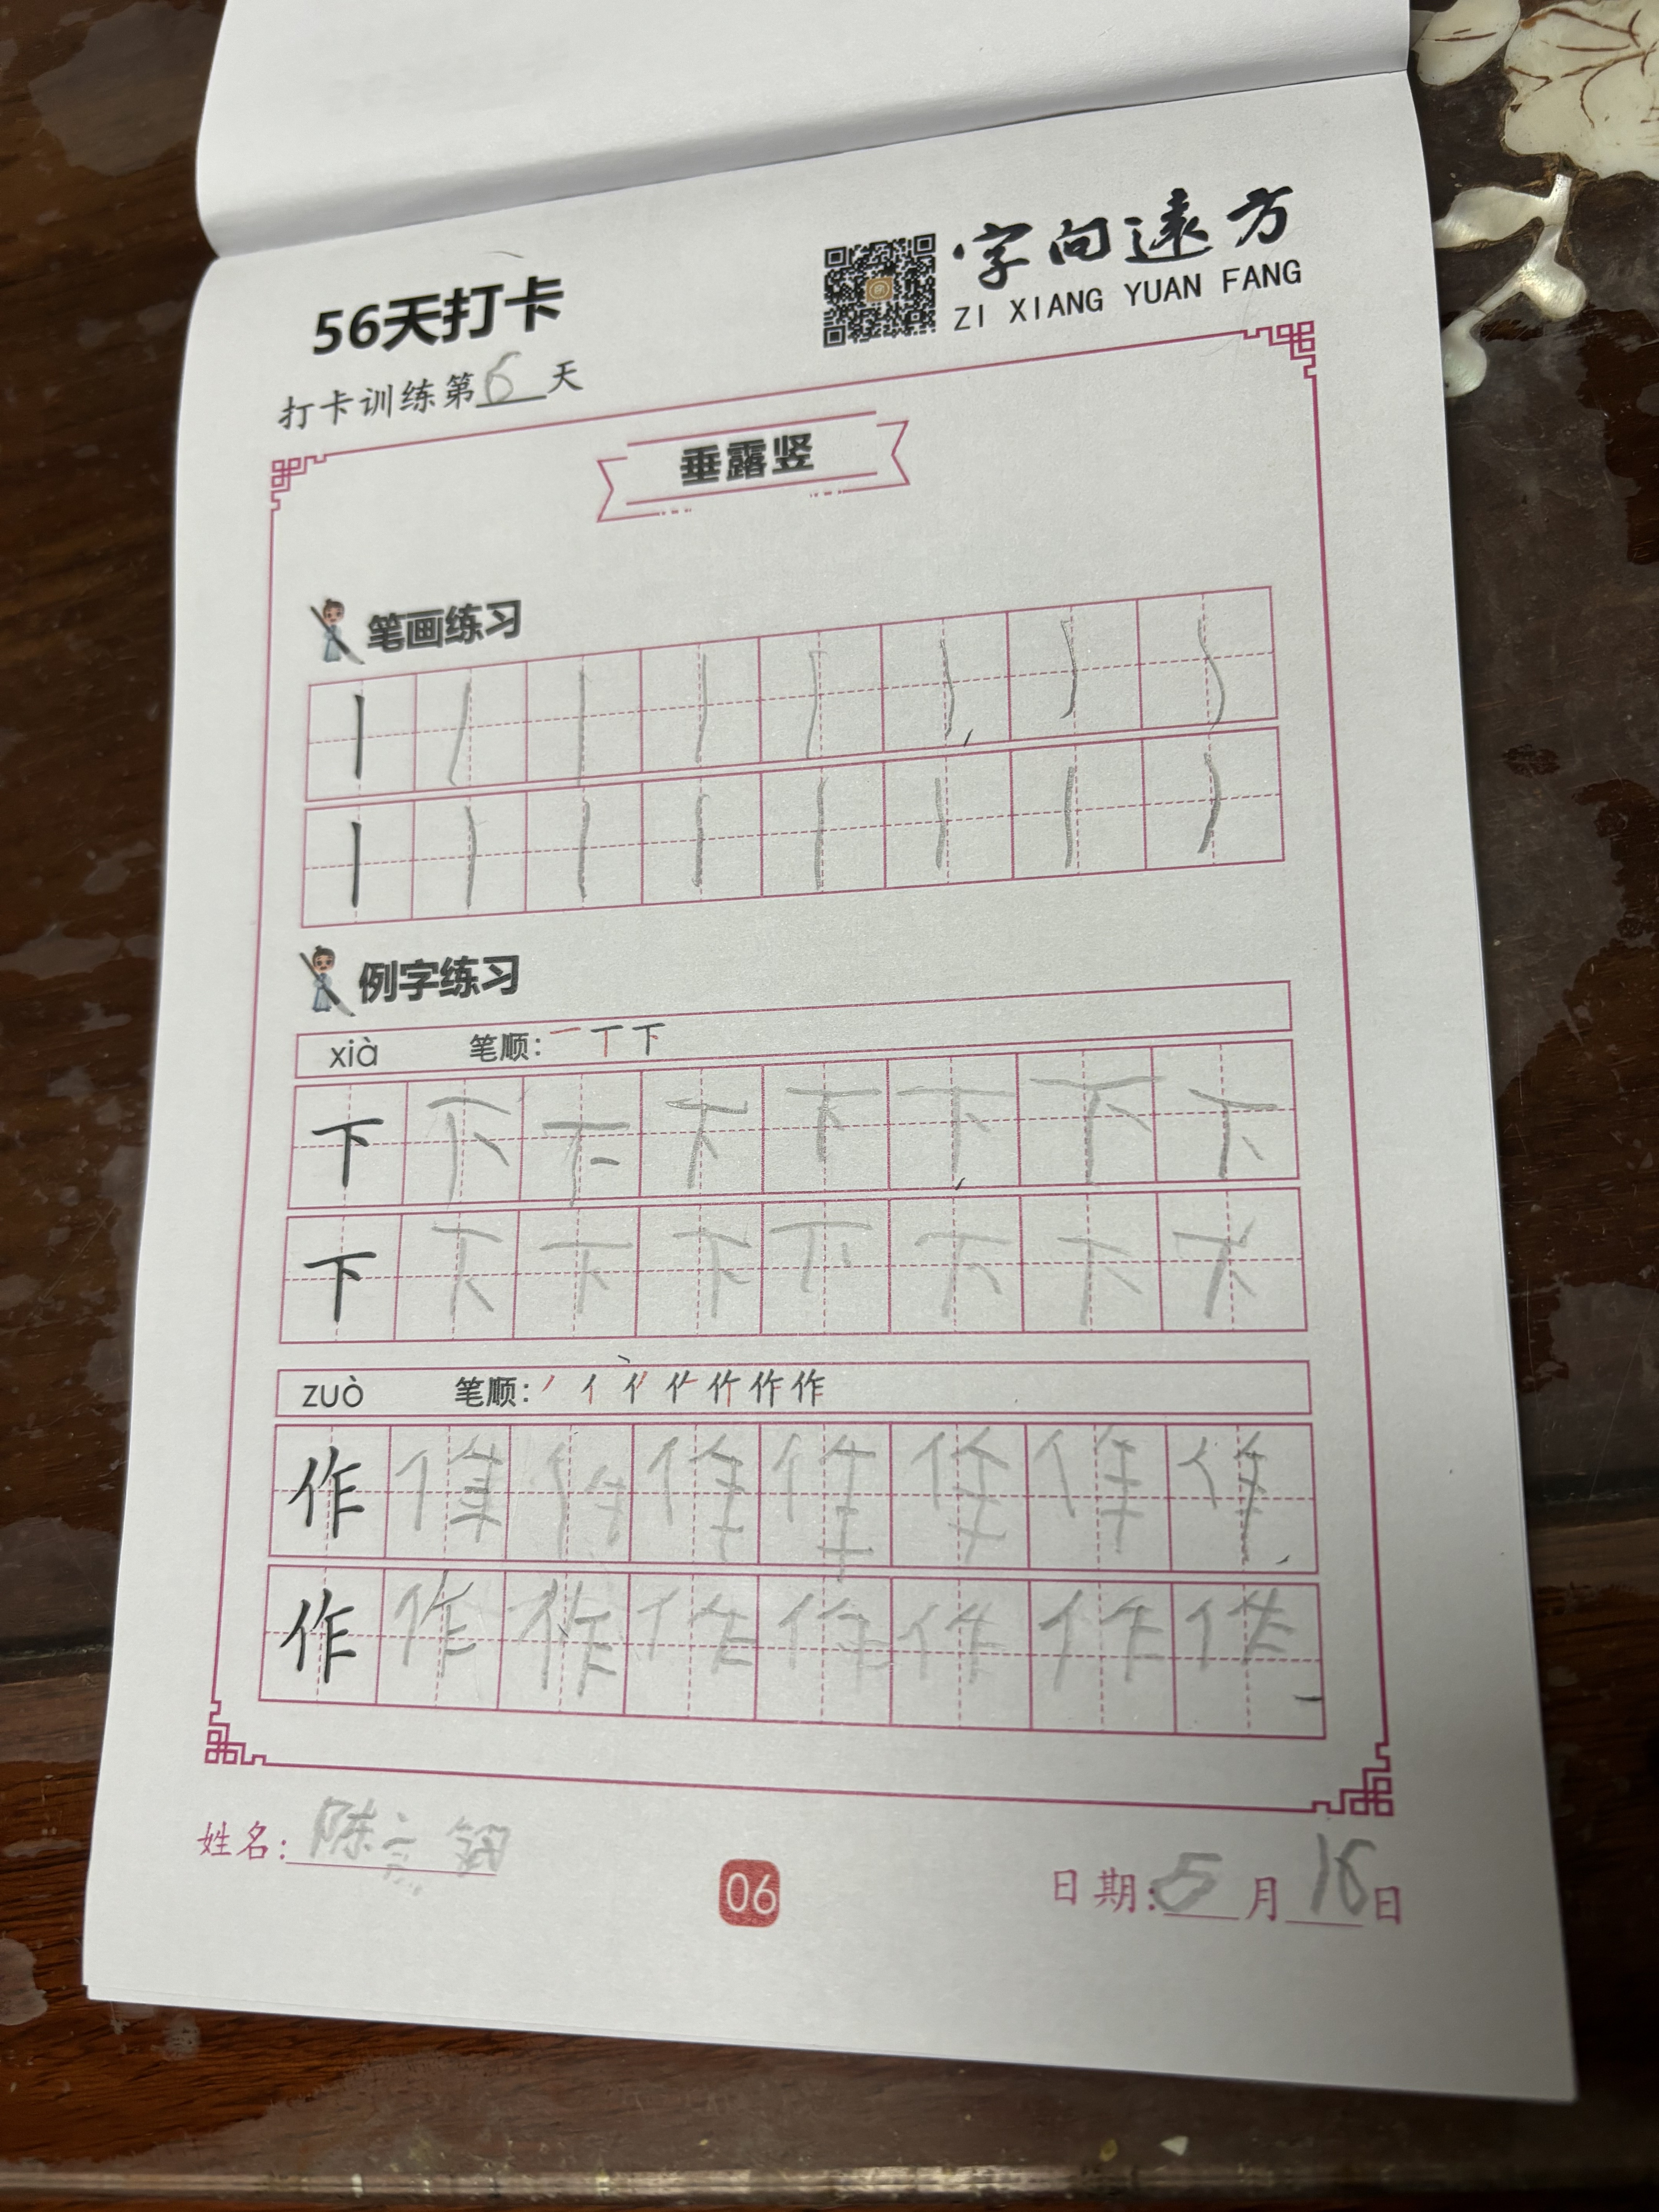 56天打卡
字向遠方
ZI XIANG YUAN FANG
打卡训练第6天
垂露竖
笔画练习
例字练习
xià 笔顺：一丅下
下下下下下下下下
下下下下下下下下
zuò 笔顺：
作作作作作作作作
作作作作作作作作
姓名：陈
06
日期：5月16日